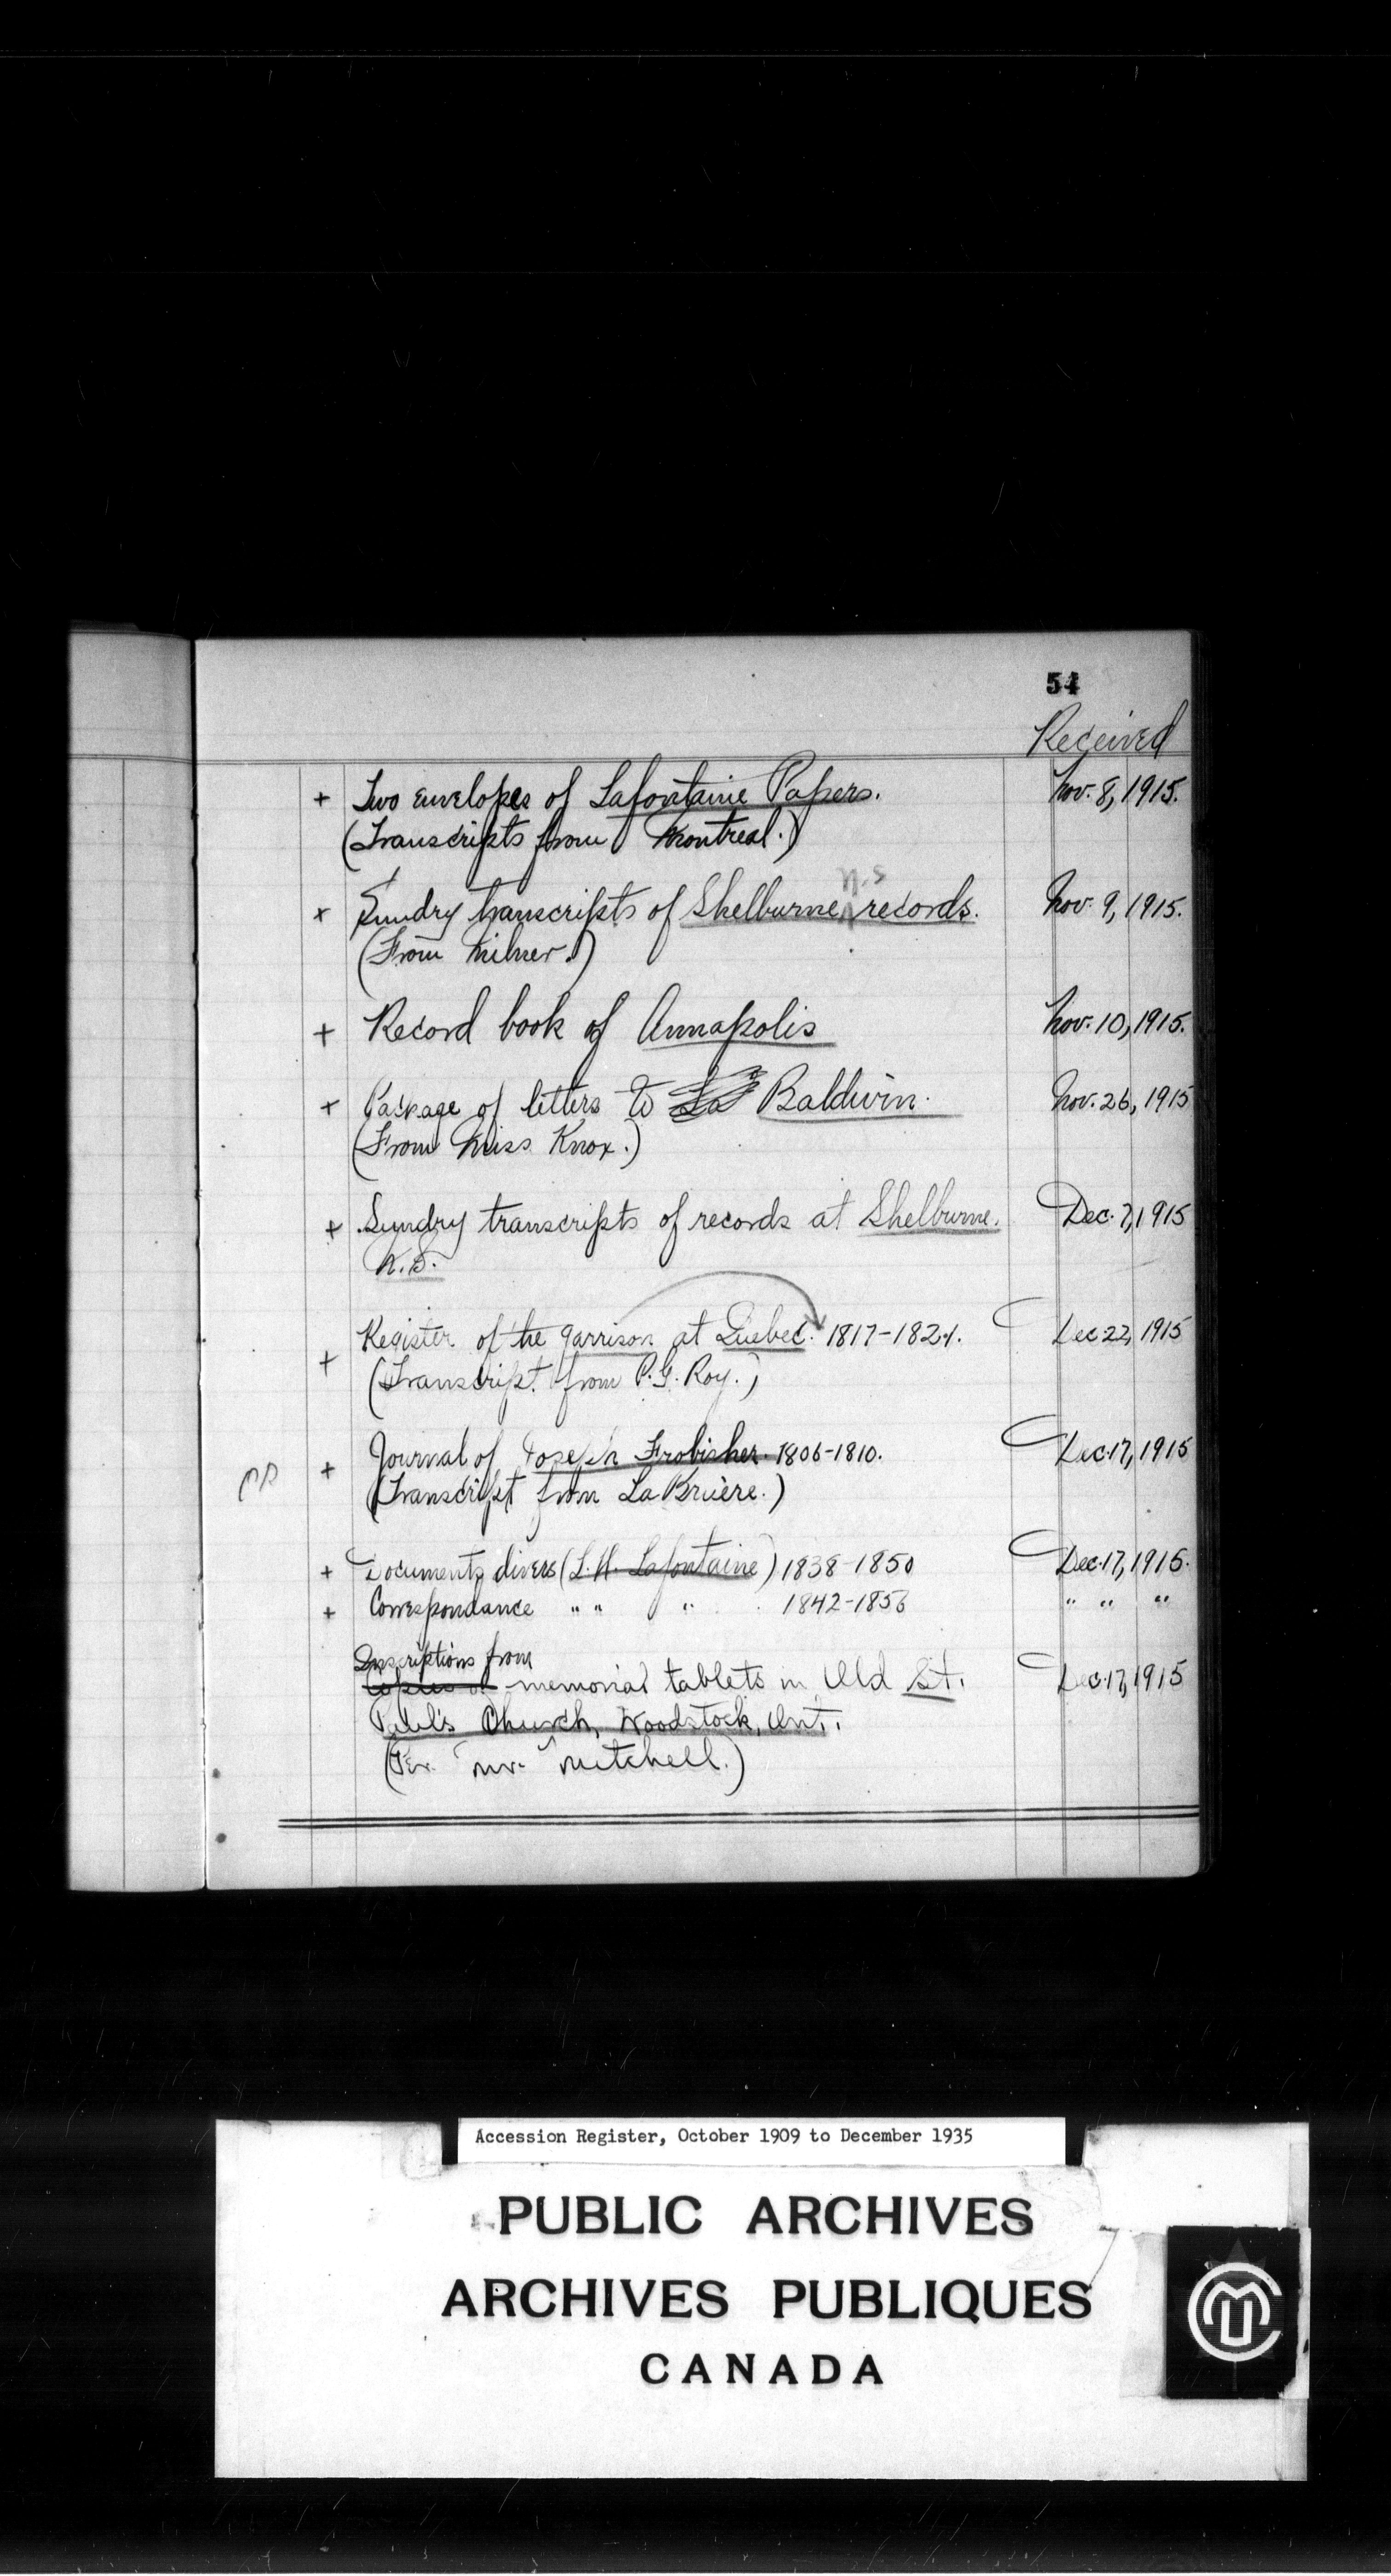 54
Received
+ Two envelopes of Lafontaine Papers. Nov. 8, 1915.
(Transcripts from Montreal.)
N.S
+ Sundry transcripts of Shelburne records. Nov. 9, 1915.
(From Milner.)
+ Record book of Annapolis Nov. 10, 1915.
+ Package of letters to La Baldwin. Nov. 26, 1915
(From Miss Knox.)
+ Sundry transcripts of records at Shelburne. Dec. 7, 1915
N.S.
Register of the garrison at Quebec. 1817-1821. Dec 22, 1915
+ (Transcript from P.G. Roy.)
+ Journal of Joseph Frobisher. 1806-1810. Dec. 17, 1915
(Transcript from La Bruère.)
+ Documents divers (L.H. Lafontaine) 1838-1850 Dec. 17, 1915.
+ Correspondance " " " 1842-1856 " " "
Inscriptions from
Copies of memorial tablets in Old St. Dec. 17, 1915
Paul's Church, Woodstock, Ont.
(Per. Mr. Mitchell.)
Accession Register, October 1909 to December 1935
PUBLIC ARCHIVES
ARCHIVES PUBLIQUES
CANADA